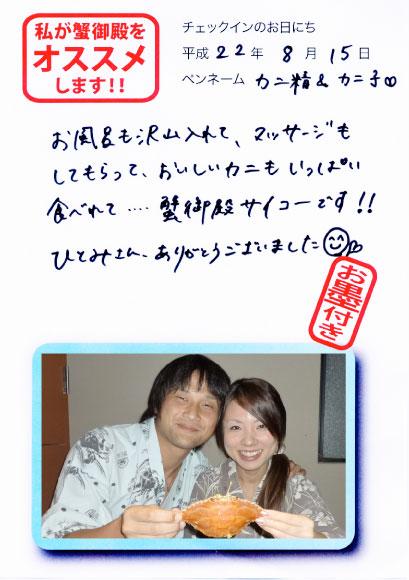 私が蟹御殿を
オススメ
します!!
チェックインのお日にち
平成 22 年 8 月 15 日
ペンネーム カニ精&カニ子
お風呂も沢山入れて、マッサージも
してもらって、おいしいカニもいっぱい
食べれて‥‥蟹御殿サイコーです!!
ひとみさん、ありがとうございました
お墨付き